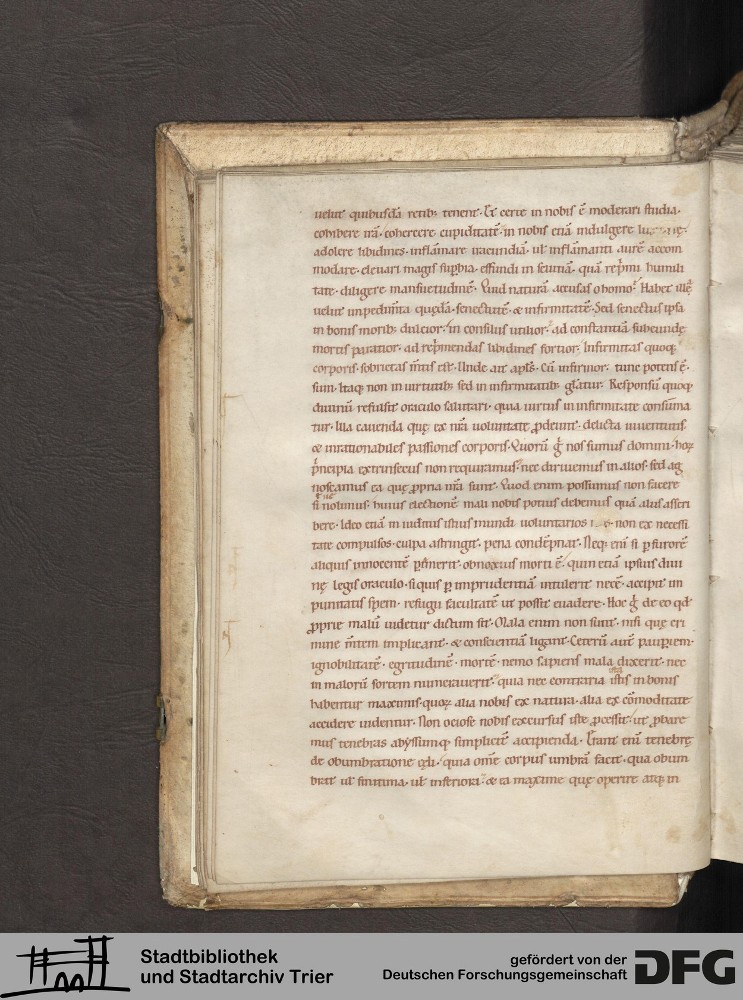 uelut quibusdā retib; tenent. Et certe in nobis ē moderari studia.
cohibere irā. coherecere cupiditatē. in nobis etiā indulgere
adolere libidines. inflāmare iracundiā. ul' inflāmanti aurē accom
modare. eleuari magis supbia. effundi in seuitiā. quā rep̄mi humili
tate. diligere mansuetudinē. Quid naturā accusas o homo? Habet illę
uelut impedim̄ta quędā. senectutē. & infirmitatē. Sed senectus ipsa
in bonis morib; dulcior. in consiliis utilior. ad constantiā subeundę
mortis paratior. ad rep̄mendas libidines fortior. Infirmitas quoq;
corporis. sobrietas m̄tis est. Unde ait apl's. Cū infirmor. tunc potens ē.
sum. Itaq; non in uirtutib; sed in infirmitatib; gl'atur. Responsū quoq;
diuinū refulsit oraculo salutari. quia uirtus in infirmitate consūma
tur. Illa cauenda quę ex nr̄a uoluntate ꝓdeunt. delicta iuuentutis
& inrationabiles passiones corporis. Quorū g̊ nos sumus domini. hoꝝ
p̄ncipia extrinsecus non requiramus. nec diriuemus in alios. sed ag
noscamus ea quę ꝓpria nr̄a sunt. Quod enim possumus non facere
si nolimus. huius electionē mali nobis potius debemus quā aliis asscri
bere. Ideo etiā in iudiciis istius mundi uoluntarios non ex necessi
tate compulsos. culpa astringit. pena condēpnat. Neq; enī si ꝑ furorē
aliquis innocentē pemerit. obnoxius morti ē. quin etiā ipsius diui
nę legis oraculo. si quis ꝑ imprudentiā intulerit necē. accipit im
punitatis spem. refugii facultatē ut possit euadere. Hoc g̊ de eo qd̄
ꝓprie malū uidetur dictum sit. Mala enim non sunt. nisi quę cri
mine m̄tem implicant. & conscientiā ligant. Ceterū autē paupiem.
ignobilitatē. egritudinē. mortē. nemo sapiens mala dixerit. nec
in malorū sortem numerauerit. quia nec contraria istis in bonis
habentur maximis. quoꝝ alia nobis ex natura. alia ex cōmoditate
accidere uidentur. Non ociose nobis excursus iste ꝓcessit. ut ꝓbare
mus tenebras abyssumq; simplicit̄ accipienda. Erant enī tenebrę
de obumbratione cęli. quia om̄e corpus umbrā facit. qua obum
brat ul' finitima. ul' inferiora. & ea maxime quę operire atq; in
Stadtbibliothek
und Stadtarchiv Trier
gefördert von der
Deutschen Forschungsgemeinschaft
DFG